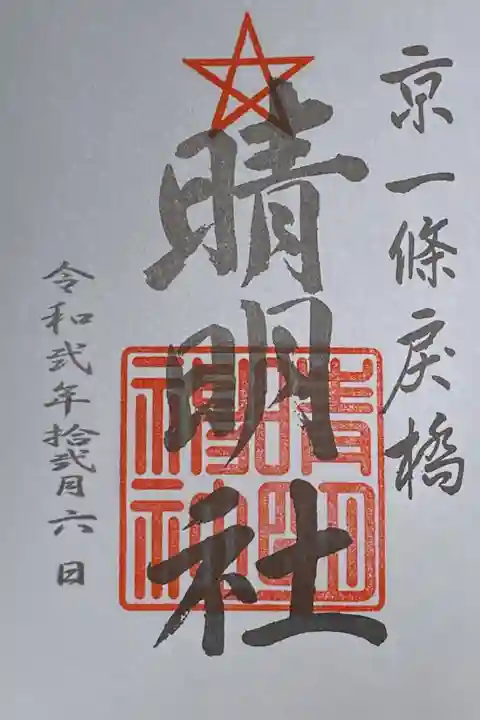 京一條戻橋
晴明社
晴明神社
令和弐年拾弐月六日